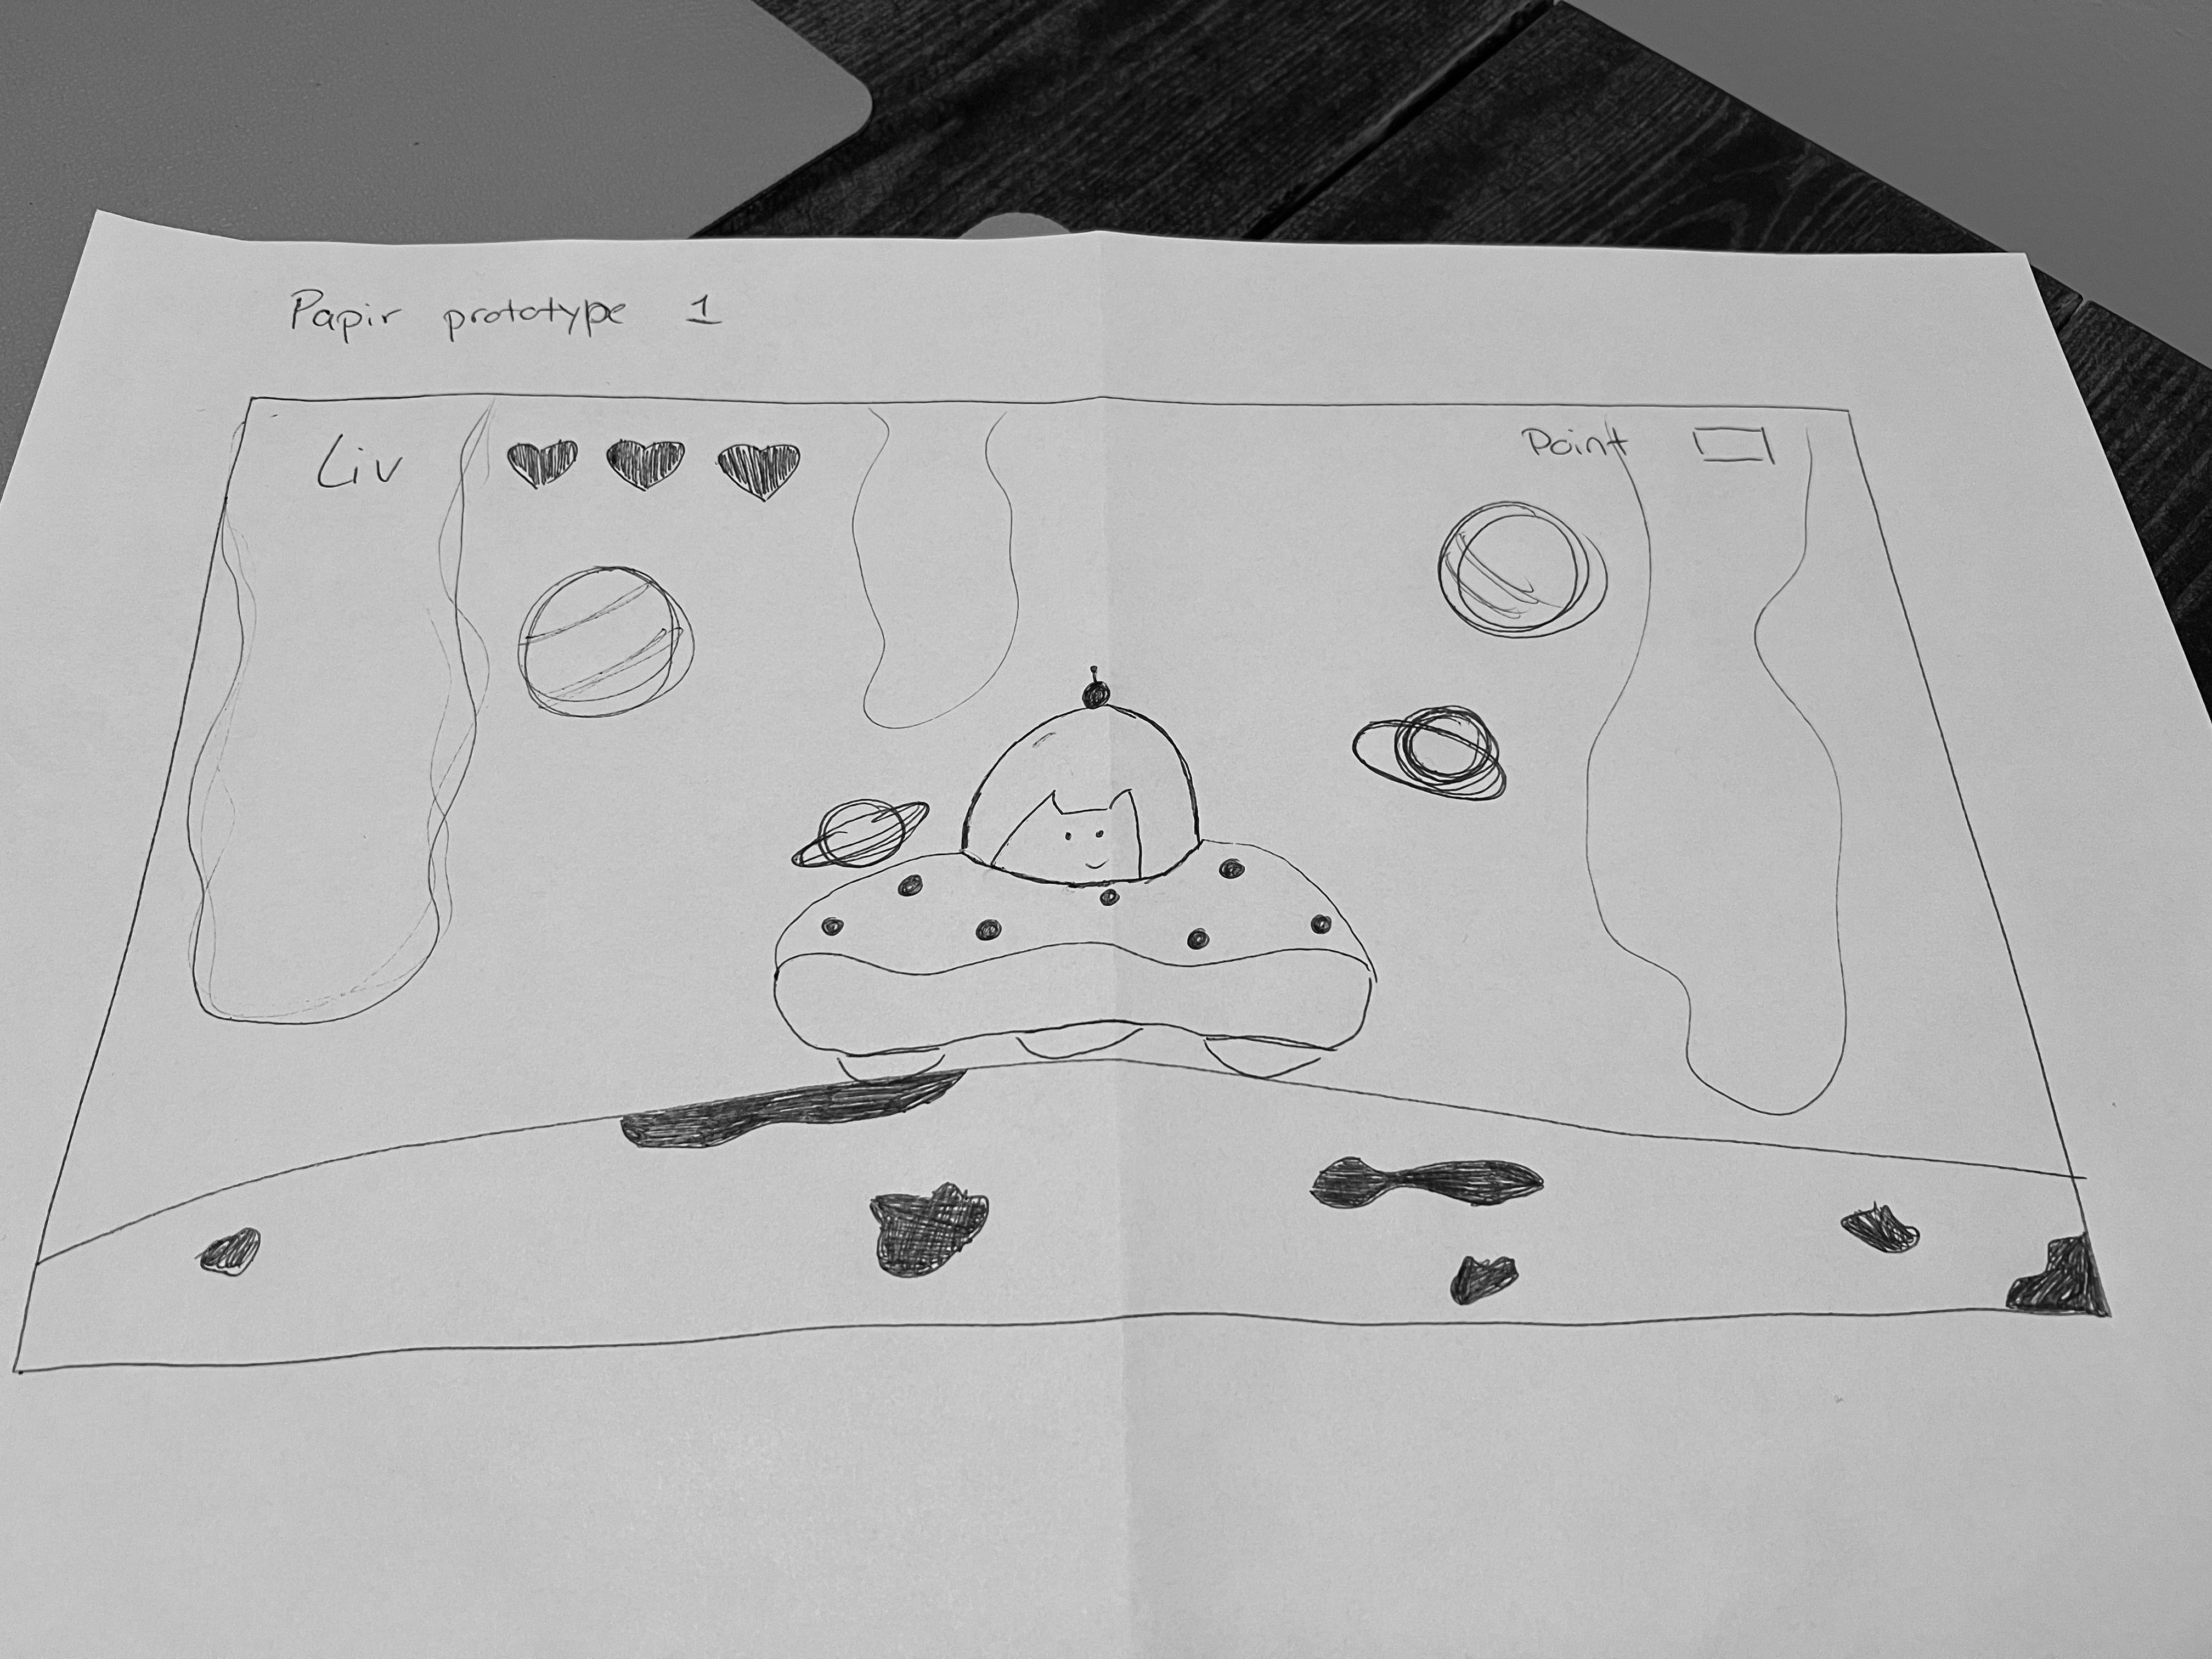 Papir prototype 1
Liv
Point